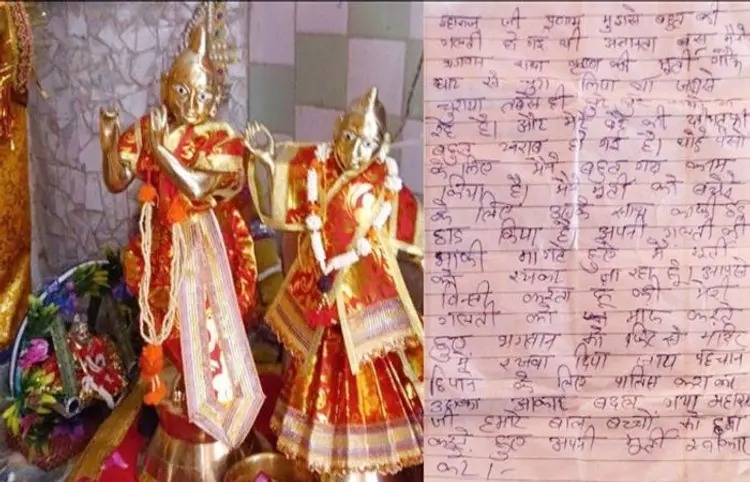 महाराज जी प्रणाम मुझसे बहुत बड़ी
गलती हो गई थी अज्ञानता बस मैंने
भगवान राधा कृष्ण की मूर्ति गौऊ
घाट से चुरा लिया था जबसे
चुराया तबसे ही
रहे है। और मेरे बेटे की तबीयत भी
बहुत खराब हो गई है। थोड़े पैसो
के लिए मैंने बहुत गंदा काम
किया है। मैंने मूर्ती को बेचने
के लिए उसके साथ काफी छेड़
छाड़ किया है अपनी गलती की
माफी मांगते हुए मैं मूर्ती
को रखकर जा रहा हूँ। आपसे
विन्ती करता हूँ की मेरी
गलती को माफ करते
हुए भगवान को फिर से मंदिर
में रखवा दिया जाय पहचान
छिपाने के लिए पालिस कराकर
उसका आकार बदला गया महाराज
जी हमारे बाल बच्चों को क्षमा
करते हुए अपनी मूर्ती स्वीकार
करे।-